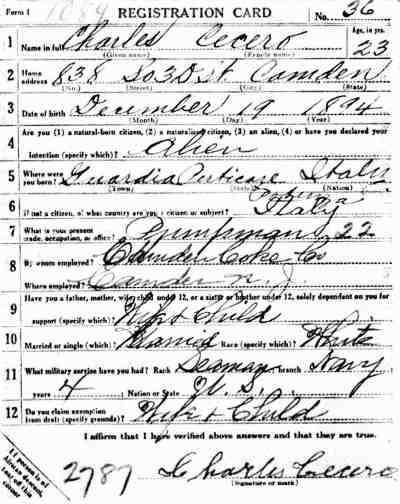 Form 1 REGISTRATION CARD No. 36
1 Name in full Charles Cecero Age, in yrs. 23
(Given name) (Family name)
2 Home address 838 So 3D St Camden
(No.) (Street) (City) (State)
3 Date of birth December 19 1894
(Month) (Day) (Year)
Are you (1) a natural-born citizen, (2) a naturalized citizen, (3) an alien, (4) or have you declared your
4 intention (specify which)? Alien
5 Where were you born? Guardia Perticare Italy
(Town) (State) (Nation)
6 If not a citizen, of what country are you a citizen or subject? Italy
7 What is your present trade, occupation, or office? Pumpman 22
8 By whom employed? Camden Coke Co
Where employed? Camden N. J.
9 Have you a father, mother, wife, child under 12, or a sister or brother under 12, solely dependent on you for
support (specify which)? Wife + Child
10 Married or single (which)? Married Race (specify which)? White
11 What military service have you had? Rank Seaman branch Navy
years 4 Nation or State U. S.
12 Do you claim exemption from draft (specify grounds)? Wife + Child
I affirm that I have verified above answers and that they are true.
If person is of African descent, tear off this corner
2787 Charles Cecero
(Signature or mark)